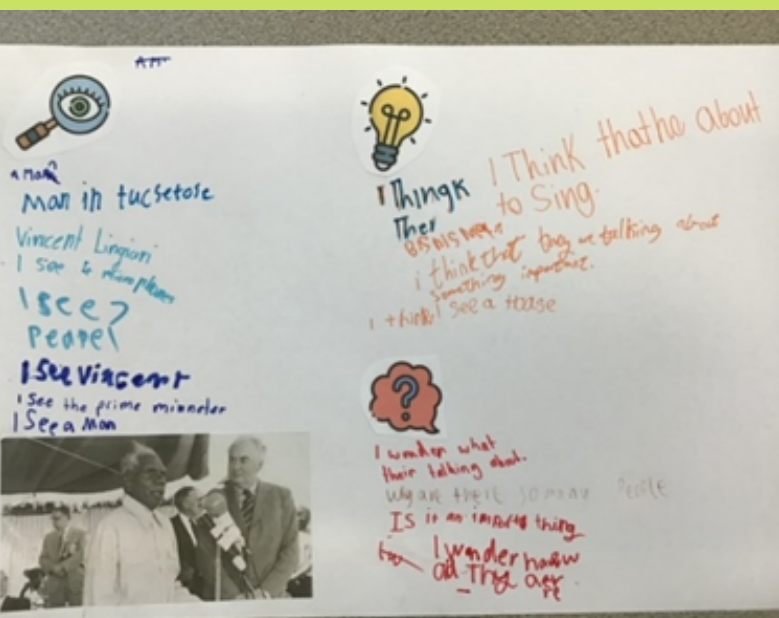 a Man
Man in tucsetose
Vincent Lingiari
I see 4
I see 7
Pearel
I see Vinsent
I see the prime minneter
I See a Man
I Thingk
Ther
I Think thatha about
to Sing.
i think that they are talking about
something important.
I think I see a
I wonder what
their talking about.
Why are there so many Peole
Is it an importo thing
I wonder haow
od They aer
re